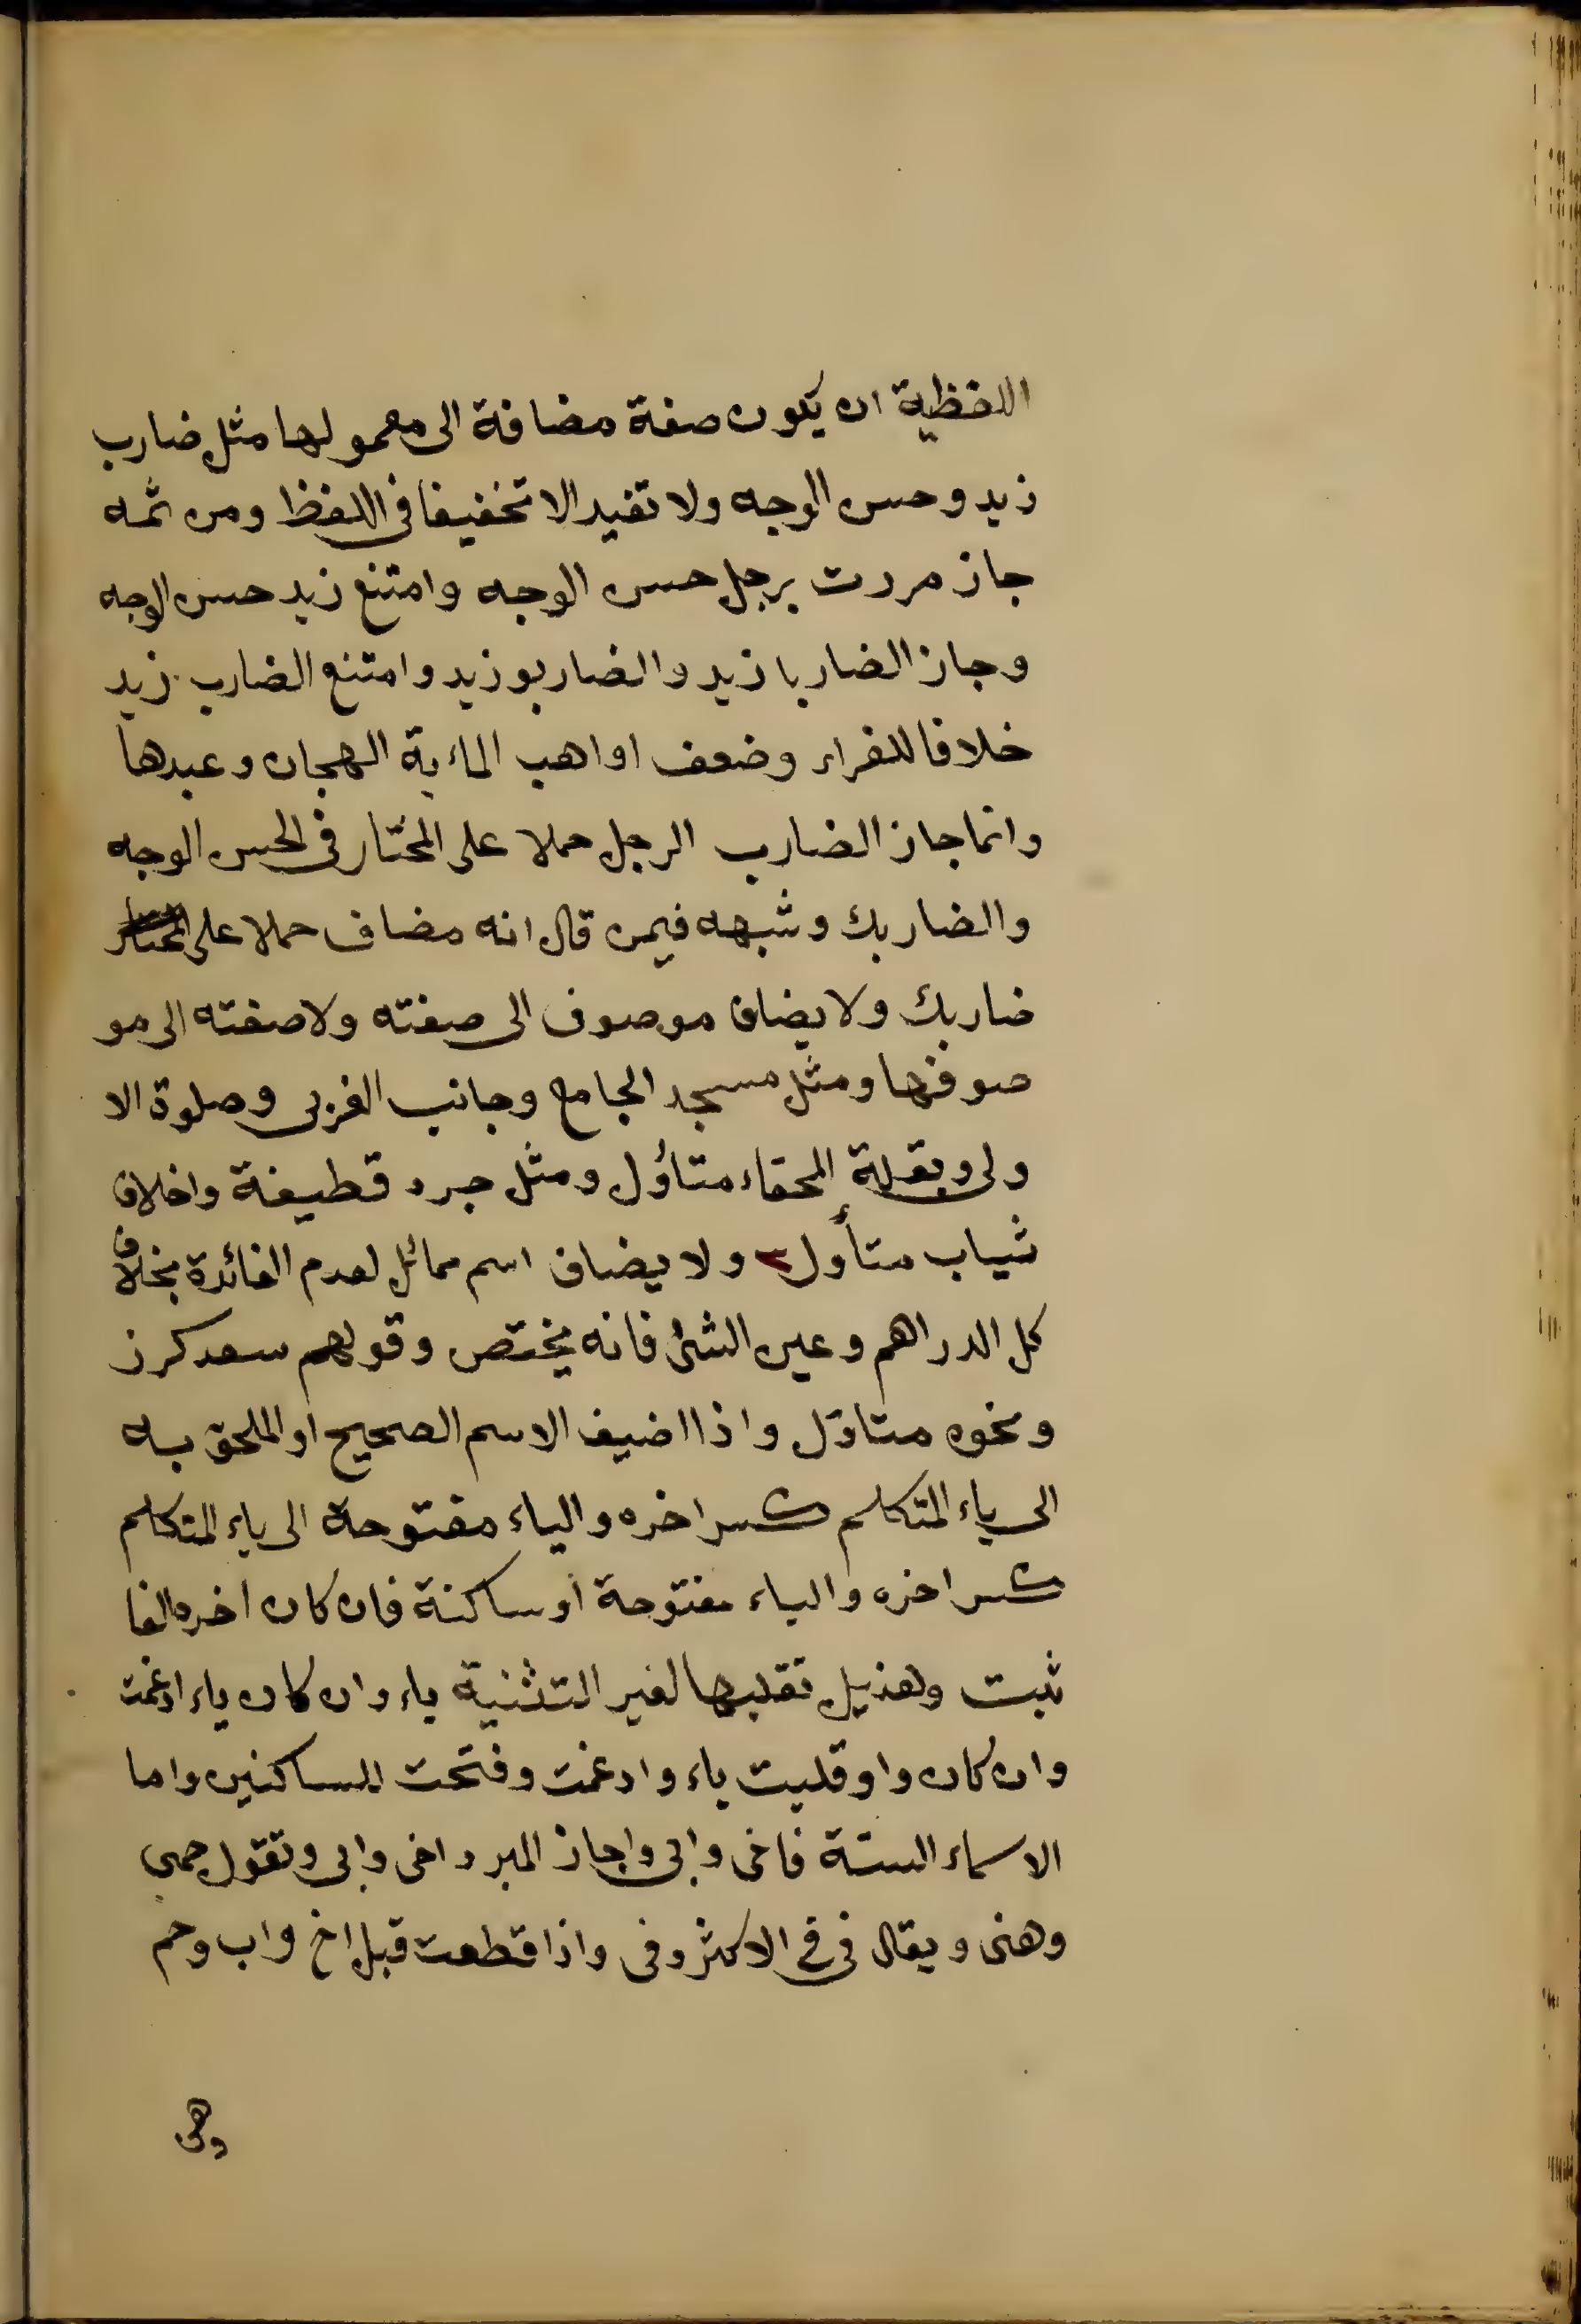 اللفظية ان يكون صفة مضافة الى معمولها مثل ضارب
زيد وحسن الوجه ولا تفيد الا تخفيفا فى اللفظ ومن ثمه
جاز مررت برجل حسن الوجه وامتنع زيد حسن الوجه
وجاز الضاربا زيد والضاربو زيد وامتنع الضارب زيد
خلافا للفراء وضعف اواهب المائة الهجان وعبدها
وانما جاز الضارب الرجل حملا على المختار فى الحسن الوجه
والضاربك وشبهه فيمن قال انه مضاف حملا على
ضاربك ولا يضاف موصوف الى صفته ولا صفته الى مو
صوفها ومثل مسجد الجامع وجانب الغربى وصلوة الا
ولى وبقلة الحمقاء متأول ومثل جرد قطيفة واخلاق
ثياب متأول ولا يضاف اسم مماثل لعدم الفائدة بخلاف
كل الدراهم وعين الشئ فانه يختص وقولهم سعد كرز
ونحوه متاول واذا اضيف الاسم الصحيح او الملحق به
الى ياء المتكلم كسر اخره والياء مفتوحة الى ياء المتكلم
كسر اخره والياء مفتوحة او ساكنة فان كان اخره الفا
ثبت وهذيل تقلبها لغير التثنية ياء وان كان ياء ادغمت
وان كان واو قلبت ياء وادغمت وفتحت للساكنين واما
الاسماء الستة فاخى وابى واجاز المبرد اخى وابى وتقول حمى
وهنى ويقال فى فى الاكثر وفى واذا قطعت قبل اخ واب وحم
وهن